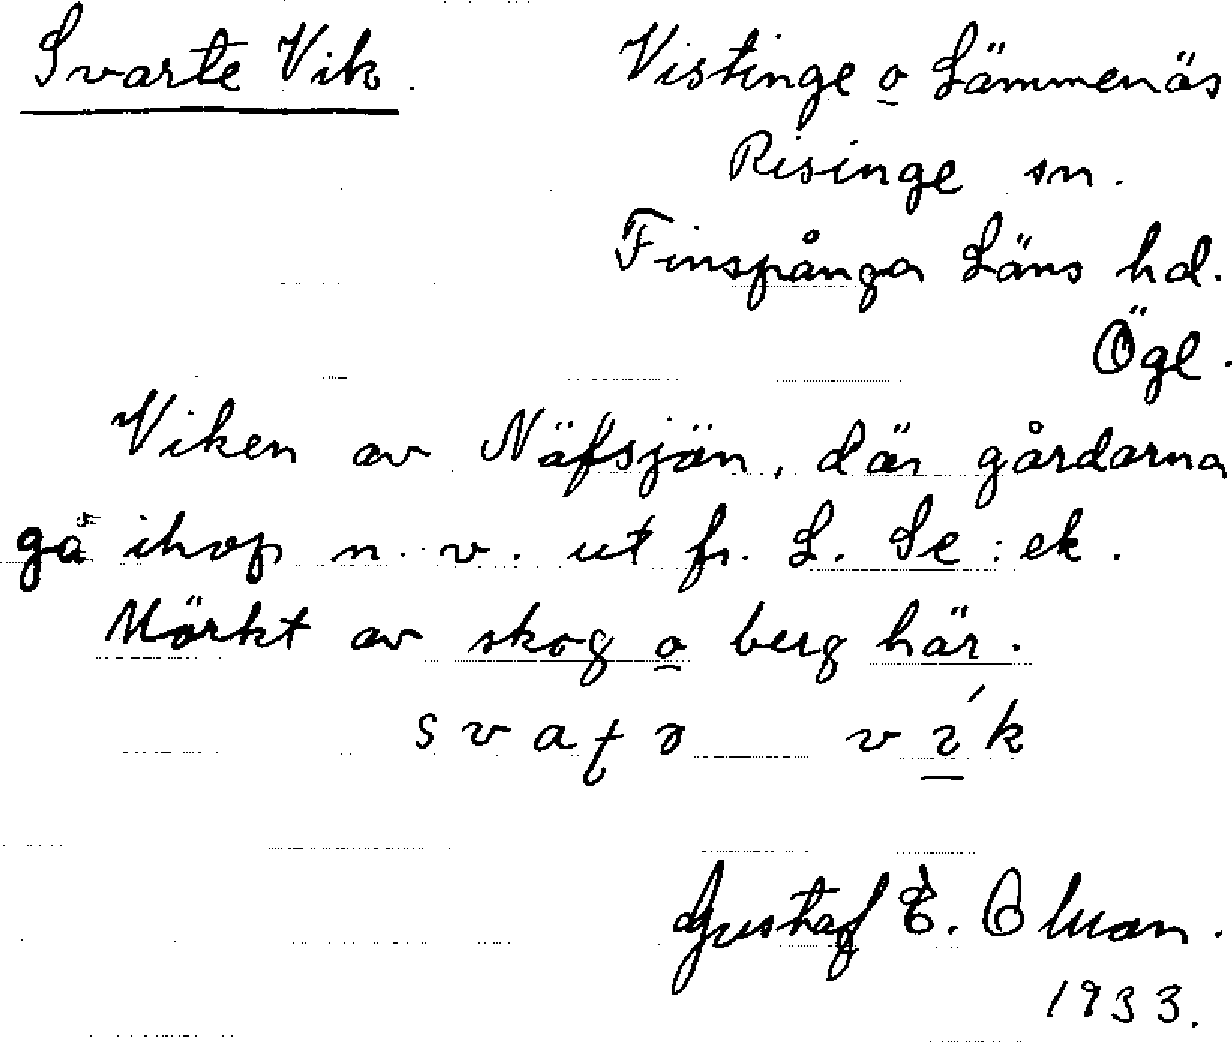 Svarte Vik.
Vistinge o Lämmenäs
Risinge sn.
Finspånga Läns hd.
Ögl.
Viken av Näfsjön, där gårdarna
gå ihop n. v. ut fr. L. Se: ek.
Mörkt av skog o berg här.
svaʈɘ vɪ́k
Gustaf E.
1933.